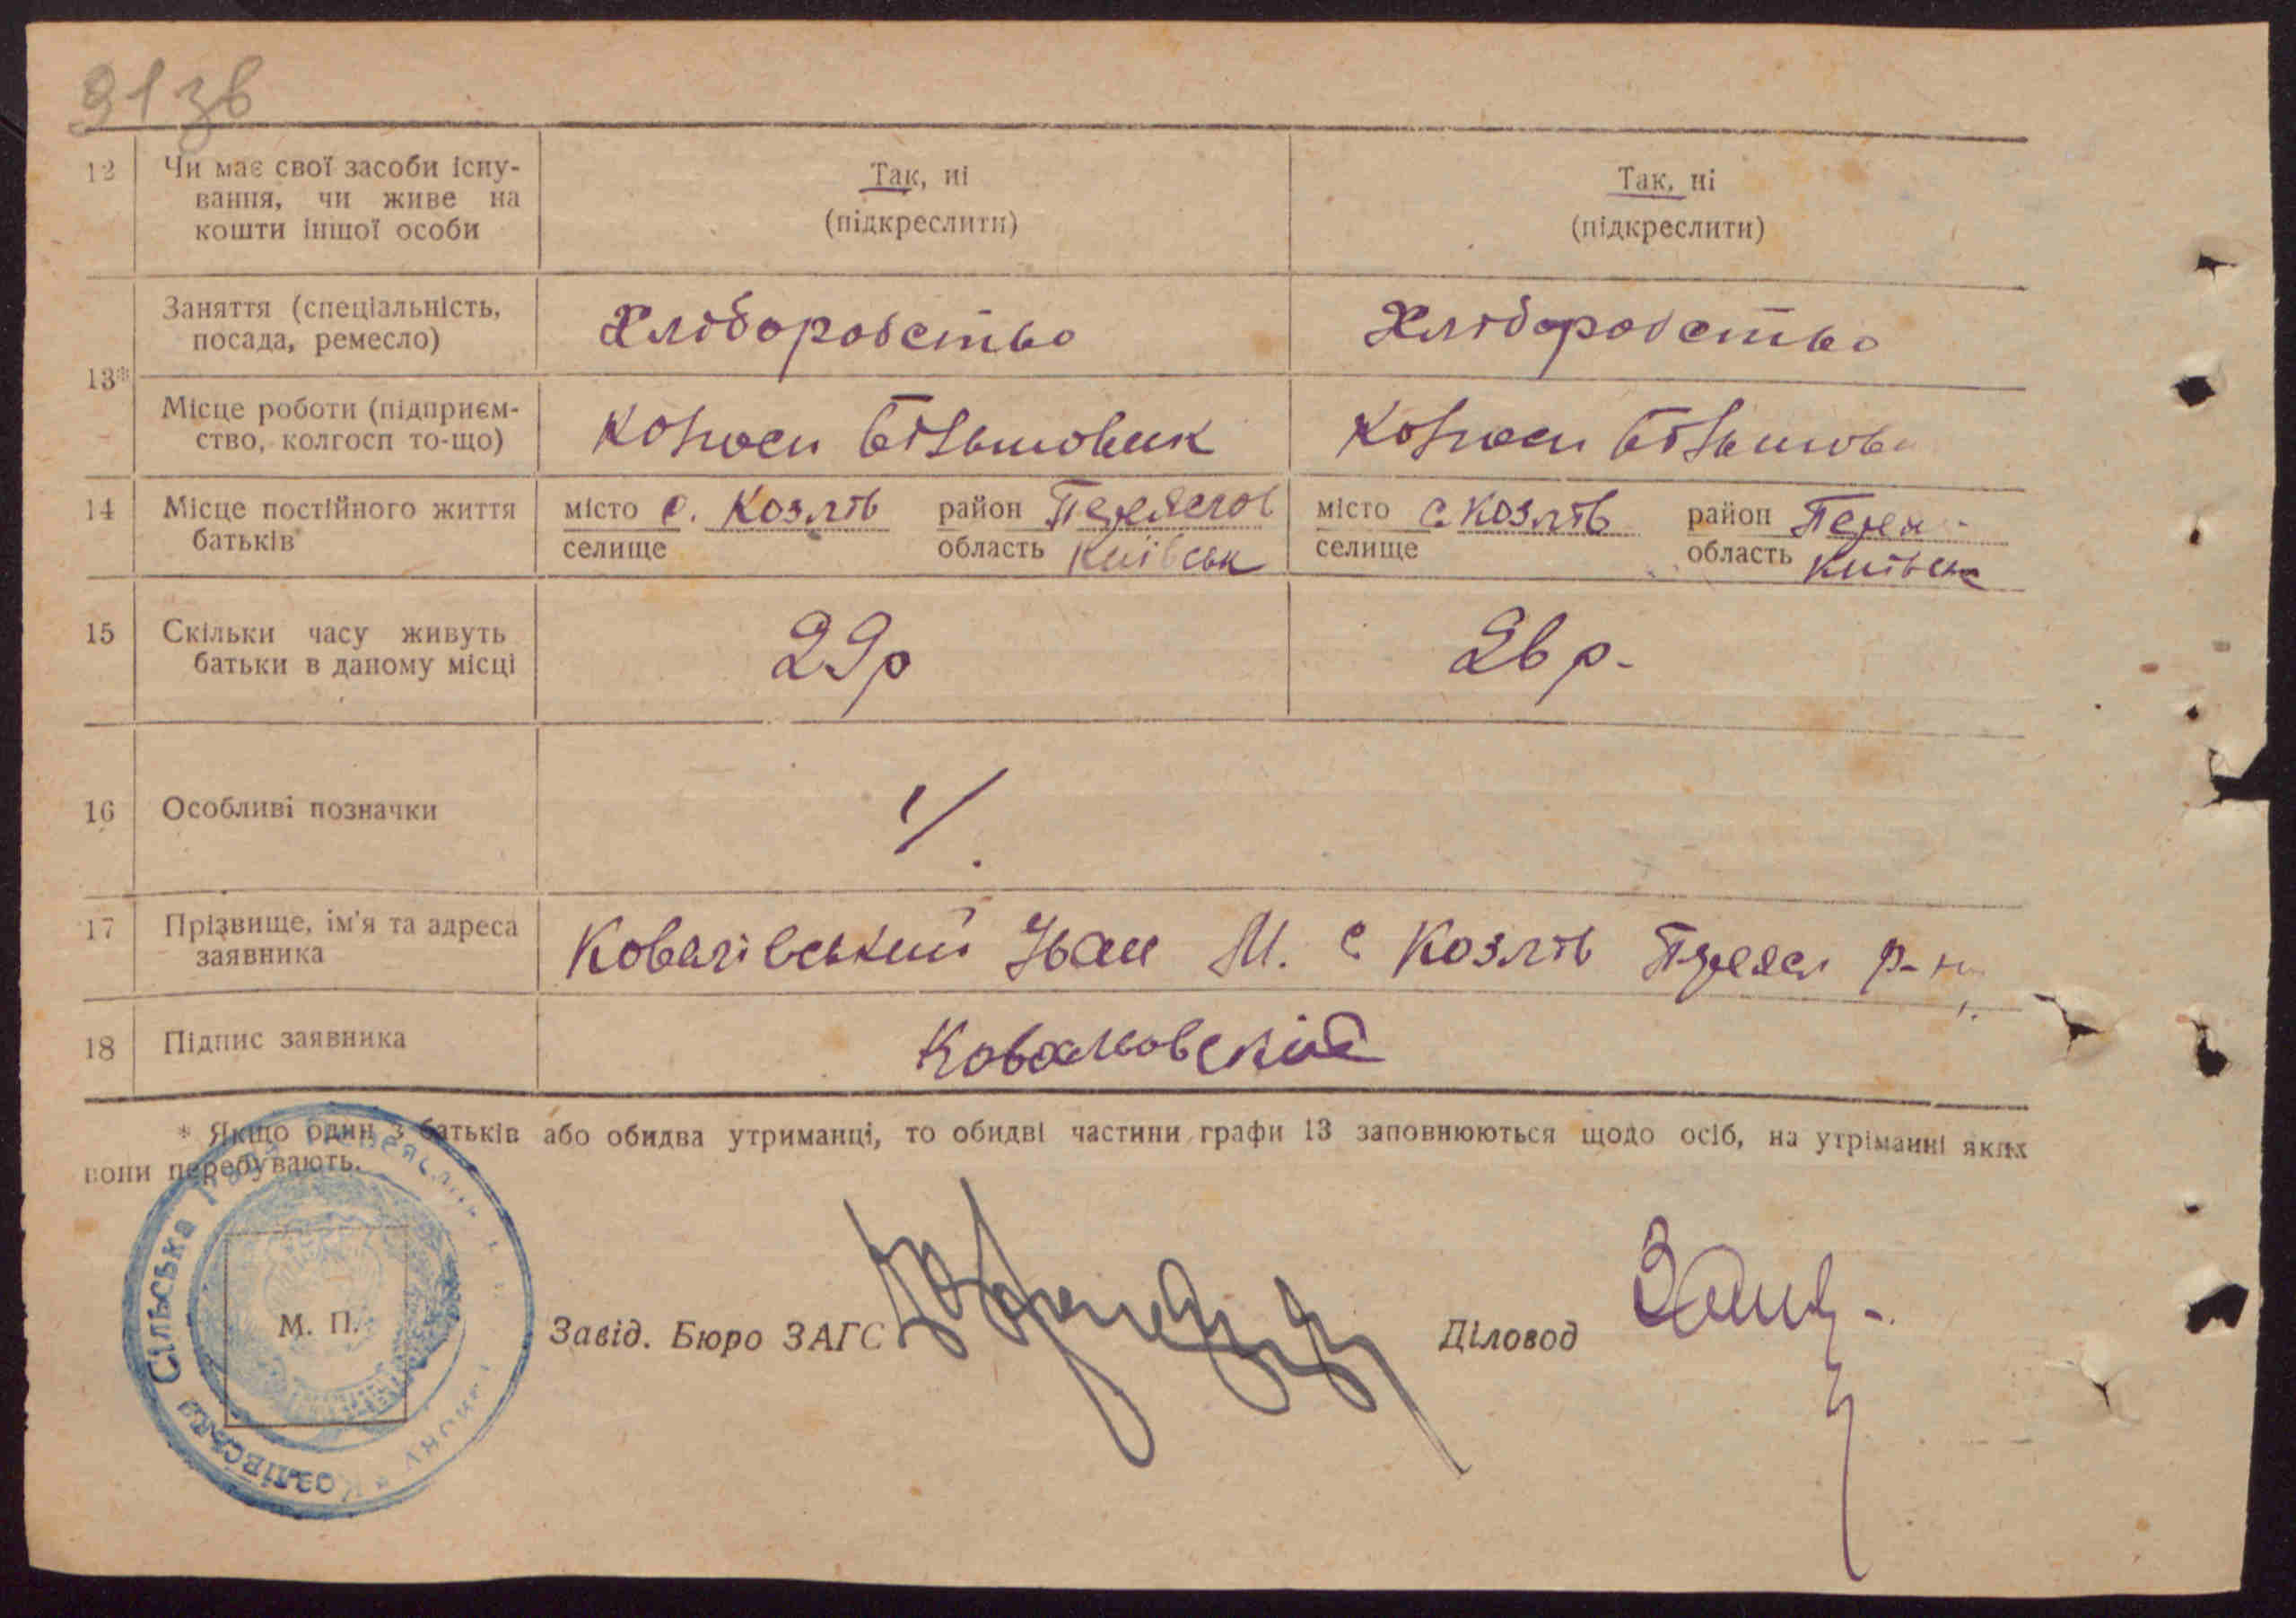 91зв
12 Чи має свої засоби існу- Так, ні Так, ні
вання, чи живе на (підкреслити) (підкреслити)
кошти іншої особи
13* Заняття (спеціальність, Хліборобство Хліборобство
посада, ремесло)
Місце роботи (підприєм- Колгосп Більшовик Колгосп Більшови
ство, колгосп то-що)
14 Місце постійного життя місто с. Козлів район Переяслов місто с. Козлів район Перея-
батьків селище область Київськ селище область Київська
15 Скільки часу живуть 29р 26 р.
батьки в даному місці
16 Особливі позначки
17 Прізвище, ім'я та адреса Ковалівський Іван М. с Козлів Переясл р-ну
заявника
18 Підпис заявника Ковалювский
* Якщо один з батьків або обидва утриманці, то обидві частини графи 13 заповнюються щодо осіб, на утріманні яких
вони перебувають.
Козлівська Сільська Рада Переяслів району
М. П. Завід. Бюро ЗАГС Діловод